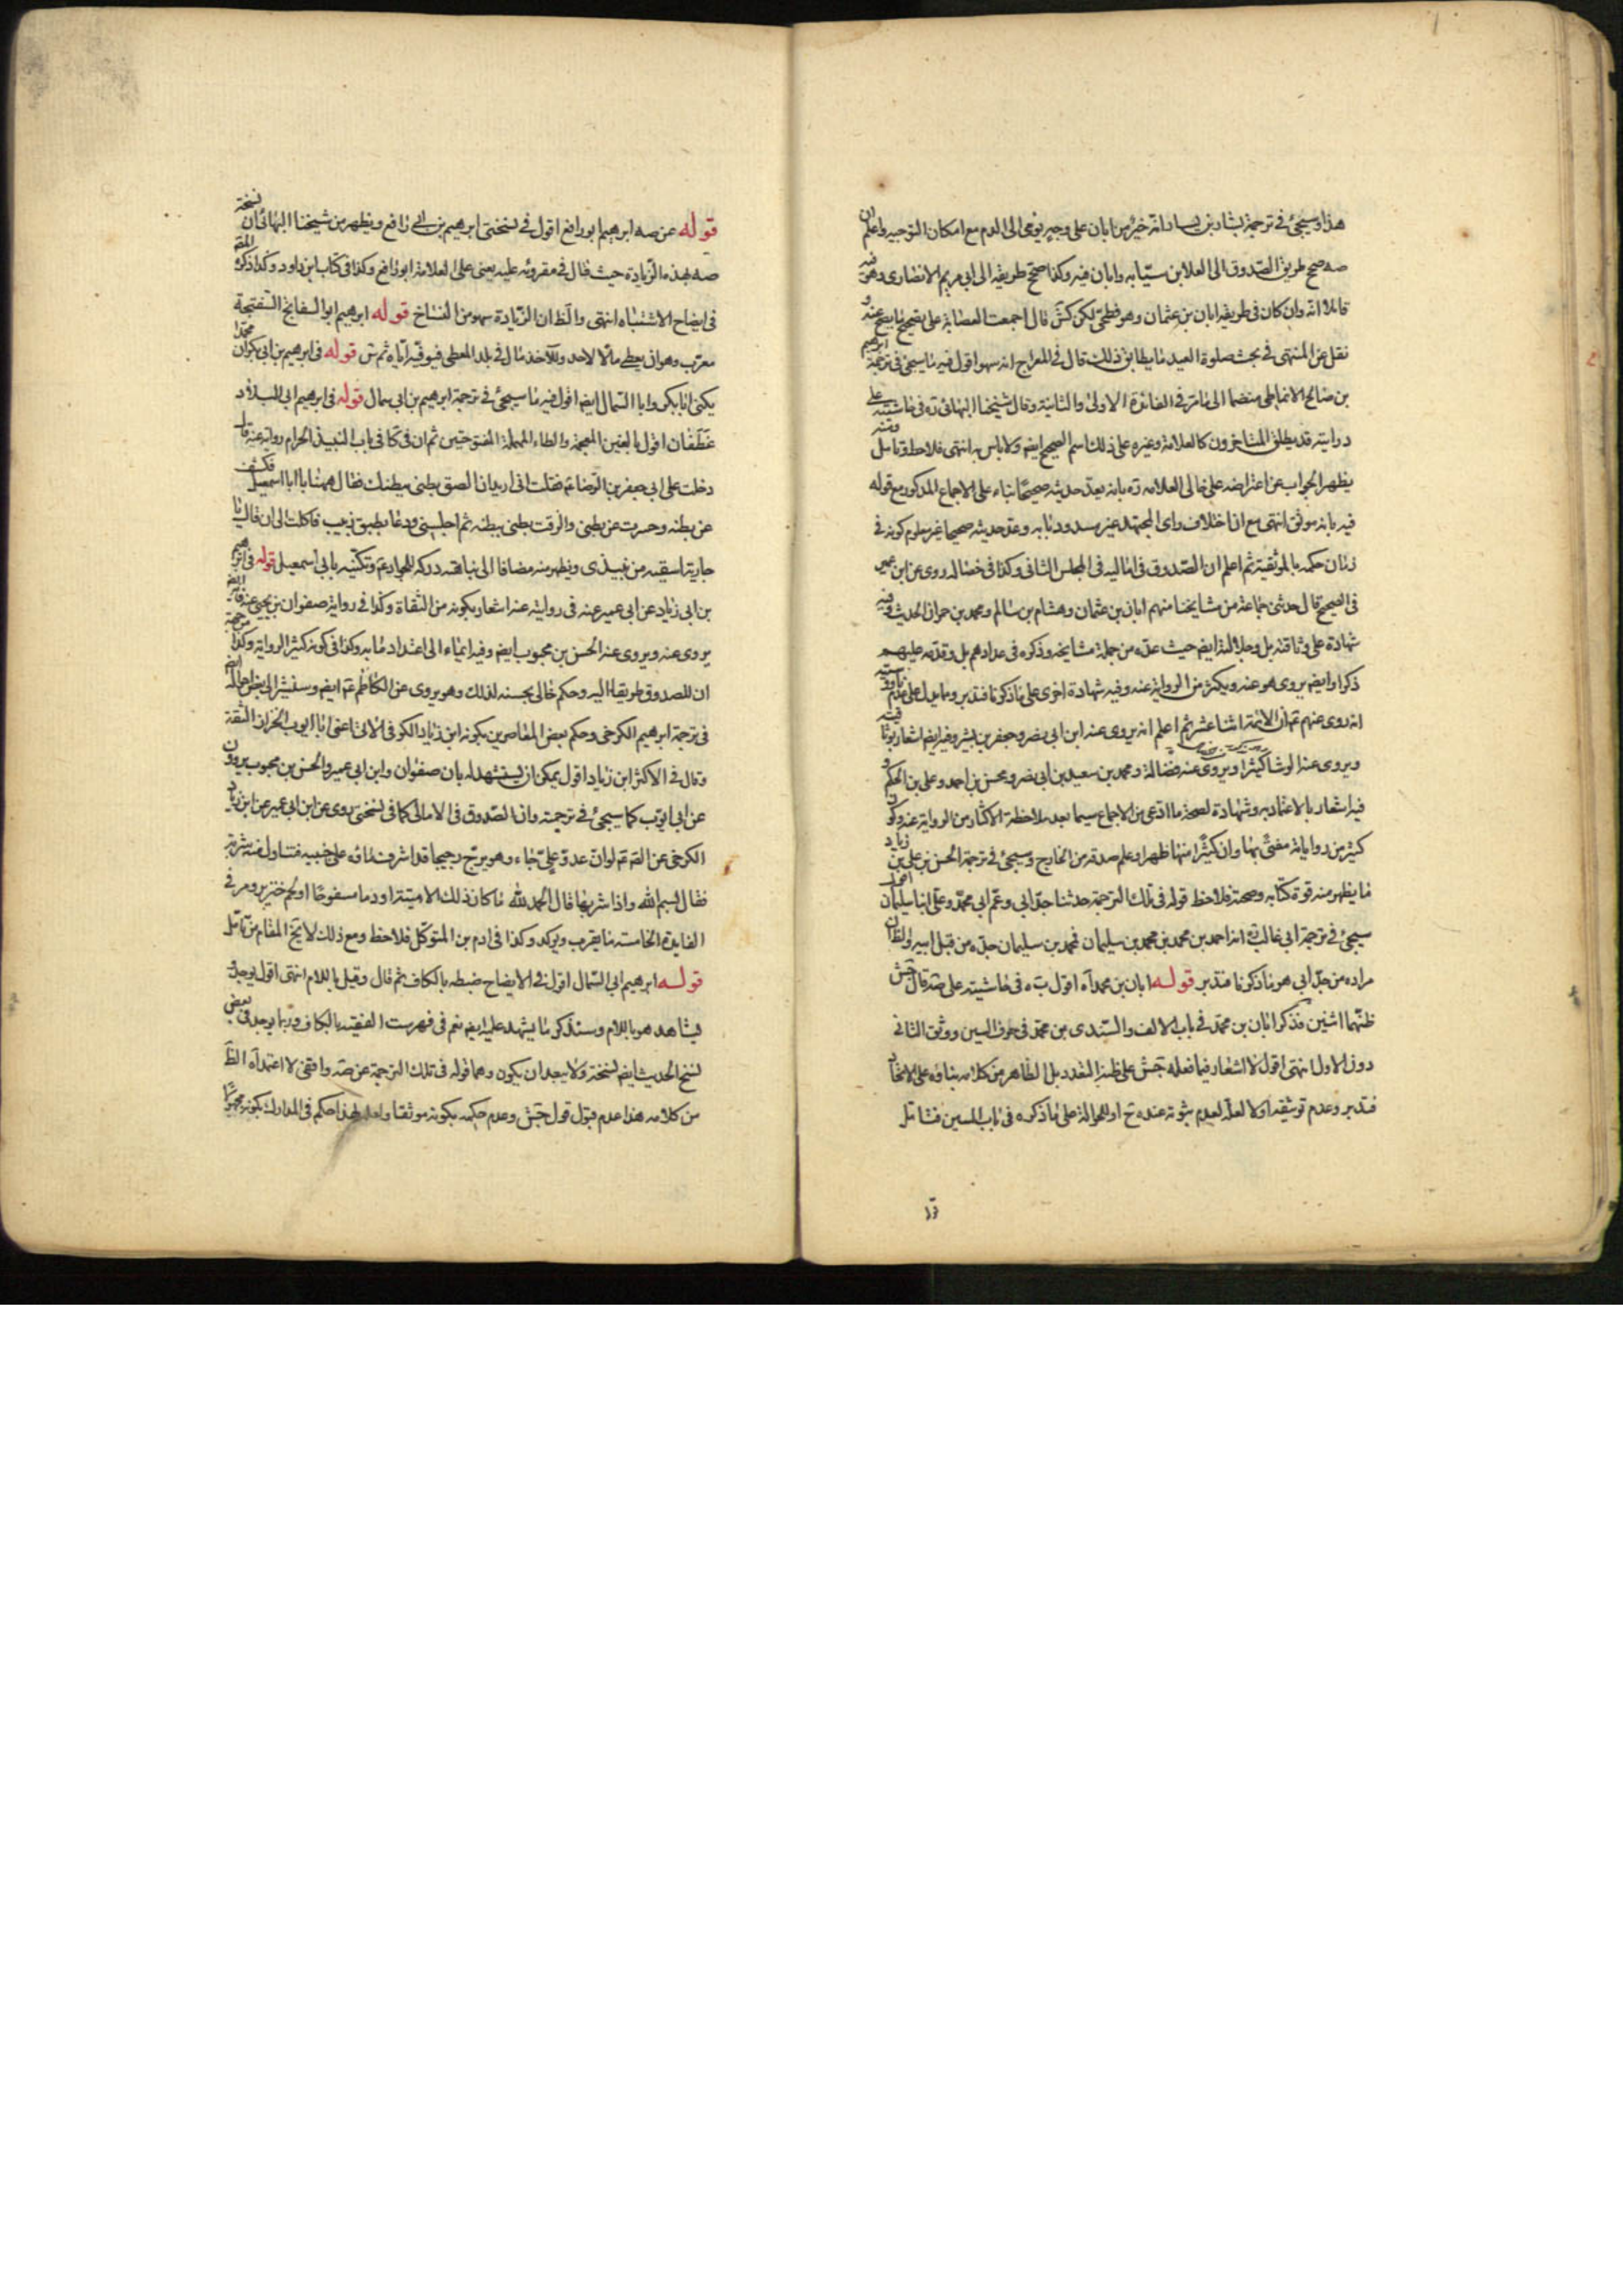 هذا وسيجئ في ترجمة بشار بن يسار انه خير من ابان على وجه يومي الى الذم مع امكان التوجيه واعلم ان
صه صح طريق الصدوق الى العلا بن سيابه وابان فيه وكذا صحح طريقه الى ابي مريم الانصارى وهو فيه
قائلا انه وان كان في طريقه ابان بن عثمان وهو فطحي لكن كش قال اجمعت العصابة على تصحيح ما يصح عنه و
نقل عن المنتهى في بحث صلوة العيد ما يطابق ذلك قال في المعراج انه سهو اقول فيه ما سيجئ في ترجمة ابرهيم
بن صالح الانماطي منضما الى ما مر في الفائدة الاولى والثانية وقال شيخنا البهائي ره في حاشيته على
درايته قد يطلق المتاخرون كالعلامة وغيره على ذلك اسم الصحيح ايضا ولا باس به انتهى فلاحظ وتامل ومنه
يظهر الجواب عن اعتراضه على خالى العلامه ره بانه يعد حديثه صحيحا بناء على الاجماع المذكور مع قوله
فيه بانه موثق انتهى مع ان اختلاف راى المجتهد غير مسدود بابه وعد حديثه صحيحا غير معلوم كونه في
زمان حكمه بالموثقية ثم اعلم ان الصدوق في اماليه في المجلس الثانى وكذا في خصاله روى عن ابن ابي عمير
في الصحيح قال حدثني جماعة من مشايخنا منهم ابان بن عثمان وهشام بن سالم ومحمد بن حمران الحديث وفيه
شهادة على وثاقته بل وجلالته ايضا حيث عده من جملة مشايخه وذكره في عدادهم بل وقدمه عليهم
ذكرا وايضا يروى هو عنه ويكثر من الرواية عنه وفيه شهادة اخرى على ما ذكرنا فتدبر ومما يدل على عدم ناووسيته
انه روى عنهم ع ان الائمة اثنا عشر ثم اعلم انه يروى عنه ابن ابي نصر وجعفر بن بشير وفيه ايضا اشعار بوثاقته
ويروى عنه الوشا كثيرا ويروى عنه فضالة ومحمد بن سعيد بن ابي نصر ومحسن بن احمد وعلى بن الحكم و
فيه اشعار بالاعتماد به وشهادة لصحة ما ادعى من الاجماع سيما بعد ملاحظة الاكثار من الرواية عنه وكون
كثير من رواياته مفتى بها وان كثيرا منها ظهر او علم صدقه من الخارج وسيجئ في ترجمة الحسن بن على بن زياد
ما يظهر منه قوة كتابه وصحته فلاحظ قوله في تلك الترجمة حدثنا جد ابي وعم ابي محمد وعلى ابنا سليمان اقول
سيجئ في ترجمة ابي غالب ره انه احمد بن محمد بن محمد بن سليمان فمحمد بن سليمان جده من قبل ابيه والظ ان
مراده من جد ابي هو ما ذكرنا فتدبر قوله ابان بن محمد آه اقول ب ه في حاشيته على صه قال جش
ظنهما اثنين فذكر ابان بن محمد في باب الالف والسندى بن محمد في حرف السين ووثق الثاني
دون الاول انتهى اقول لا اشعار فيما فعله جش على ظنه التعدد بل الظاهر من كلامه بناؤه على الاتحاد
فتدبر وعدم توثيقه اولا لعله لعدم ثبوته عنده ح او للحوالة على ما ذكره في باب السين فتامل
قوله عن صه ابرهيم ابو رافع اقول في نسختى ابرهيم بن ابي رافع ويظهر من شيخنا البهائي ان نسخة
صه بهذه الزيادة حيث قال في مقروئه عليه يعنى على العلامة ابو رافع وكذا في كتاب ابن داود وكذا ذكره المص
في ايضاح الاشتباه انتهى والظ ان الزيادة سهو من النساخ قوله ابرهيم ابو السفاتج السفتجة
معرب وهو ان يعطى مالا لاحد وللآخذ مال في بلد المعطى فيوفيه اياه ثم ش قوله في ابرهيم بن ابي بكر ان محمدا
يكنى ابا بكر وابا السمال ايضا اقول فيه ما سيجئ في ترجمة ابرهيم بن ابي سمال قوله في ابرهيم ابي البلاد
غطفان اقول بالغين المعجمة والطاء المهملة المفتوحتين ثم ان في كا في باب النبيذ الحرام رواية عنه قال
دخلت على ابي جعفر بن الرضا ع فقلت انى اريد ان الصق بطنى ببطنك فقال ههنا يا ابا اسمعيل فكشف
عن بطنه وحسرت عن بطنى والزقت بطنى ببطنه ثم اجلسنى ودعا بطبق زبيب فاكلت الى ان قال يا
جارية اسقيه من نبيذى ويظهر منه مضافا الى نباهته دركه للجواد ع وتكنيه بابي اسمعيل قوله في ابرهيم
بن ابي زياد عن ابي عمير عنه في روايته عنه اشعار بكونه من الثقاة وكذا في رواية صفوان بن يحيى عنه فانه ايضا
يروى عنه ويروى عنه الحسن بن محبوب ايضا وفيه ايماء الى اعتداد ما به وكذا في كونه كثير الرواية وكذا من جهة
ان للصدوق طريقا اليه وحكم خالى بحسنه لذلك وهو يروى عن الكاظم ع ايضا وسنشير الى بعض احواله ايضا
في ترجمة ابرهيم الكرخي وحكم بعض المعاصرين بكونه ابن زياد الكوفي الآتى اعنى ابا ايوب الخزاز الثقة
وقال في الاكثر ابن زياد اقول يمكن ان يستشهد له بان صفوان وابن ابي عمير والحسن بن محبوب يروون
عن ابي ايوب كما سيجئ في ترجمته وان الصدوق في الامالى كما في نسختى روى عن ابن ابي عمير عن ابن زياد
الكرخي عن الصم ع لو ان عدو على جاء وهو يرج رجيجا قد اشرف ماؤه على جنبيه فتناول منه شربة
فقال بسم الله واذا شربها قال الحمد لله ما كان ذلك الا ميتة او دما مسفوحا او لحم خنزير ومر في
الفايدة الخامسة ما يقرب ويؤكد وكذا في ادم بن المتوكل فلاحظ ومع ذلك لا يخ المقام من تامل
قوله ابرهيم ابي السمال اقول في الايضاح ضبطه بالكاف ثم قال وقيل باللام انتهى اقول يوجد
شاهد هو باللام وسنذكر ما يشهد عليه ايضا نعم في فهرست الفقيه بالكاف وربما يوجد في بعض
نسخ الحديث ايضا نسخة ولا يبعد ان يكون وهما قوله في تلك الترجمة عن صه واقفى لا اعتمد آه الظ
من كلامه هذا عدم قبول قول جش وعدم حكمه بكونه موثقا ولعله لهذا حكم في المدارك بكونه مجهولا